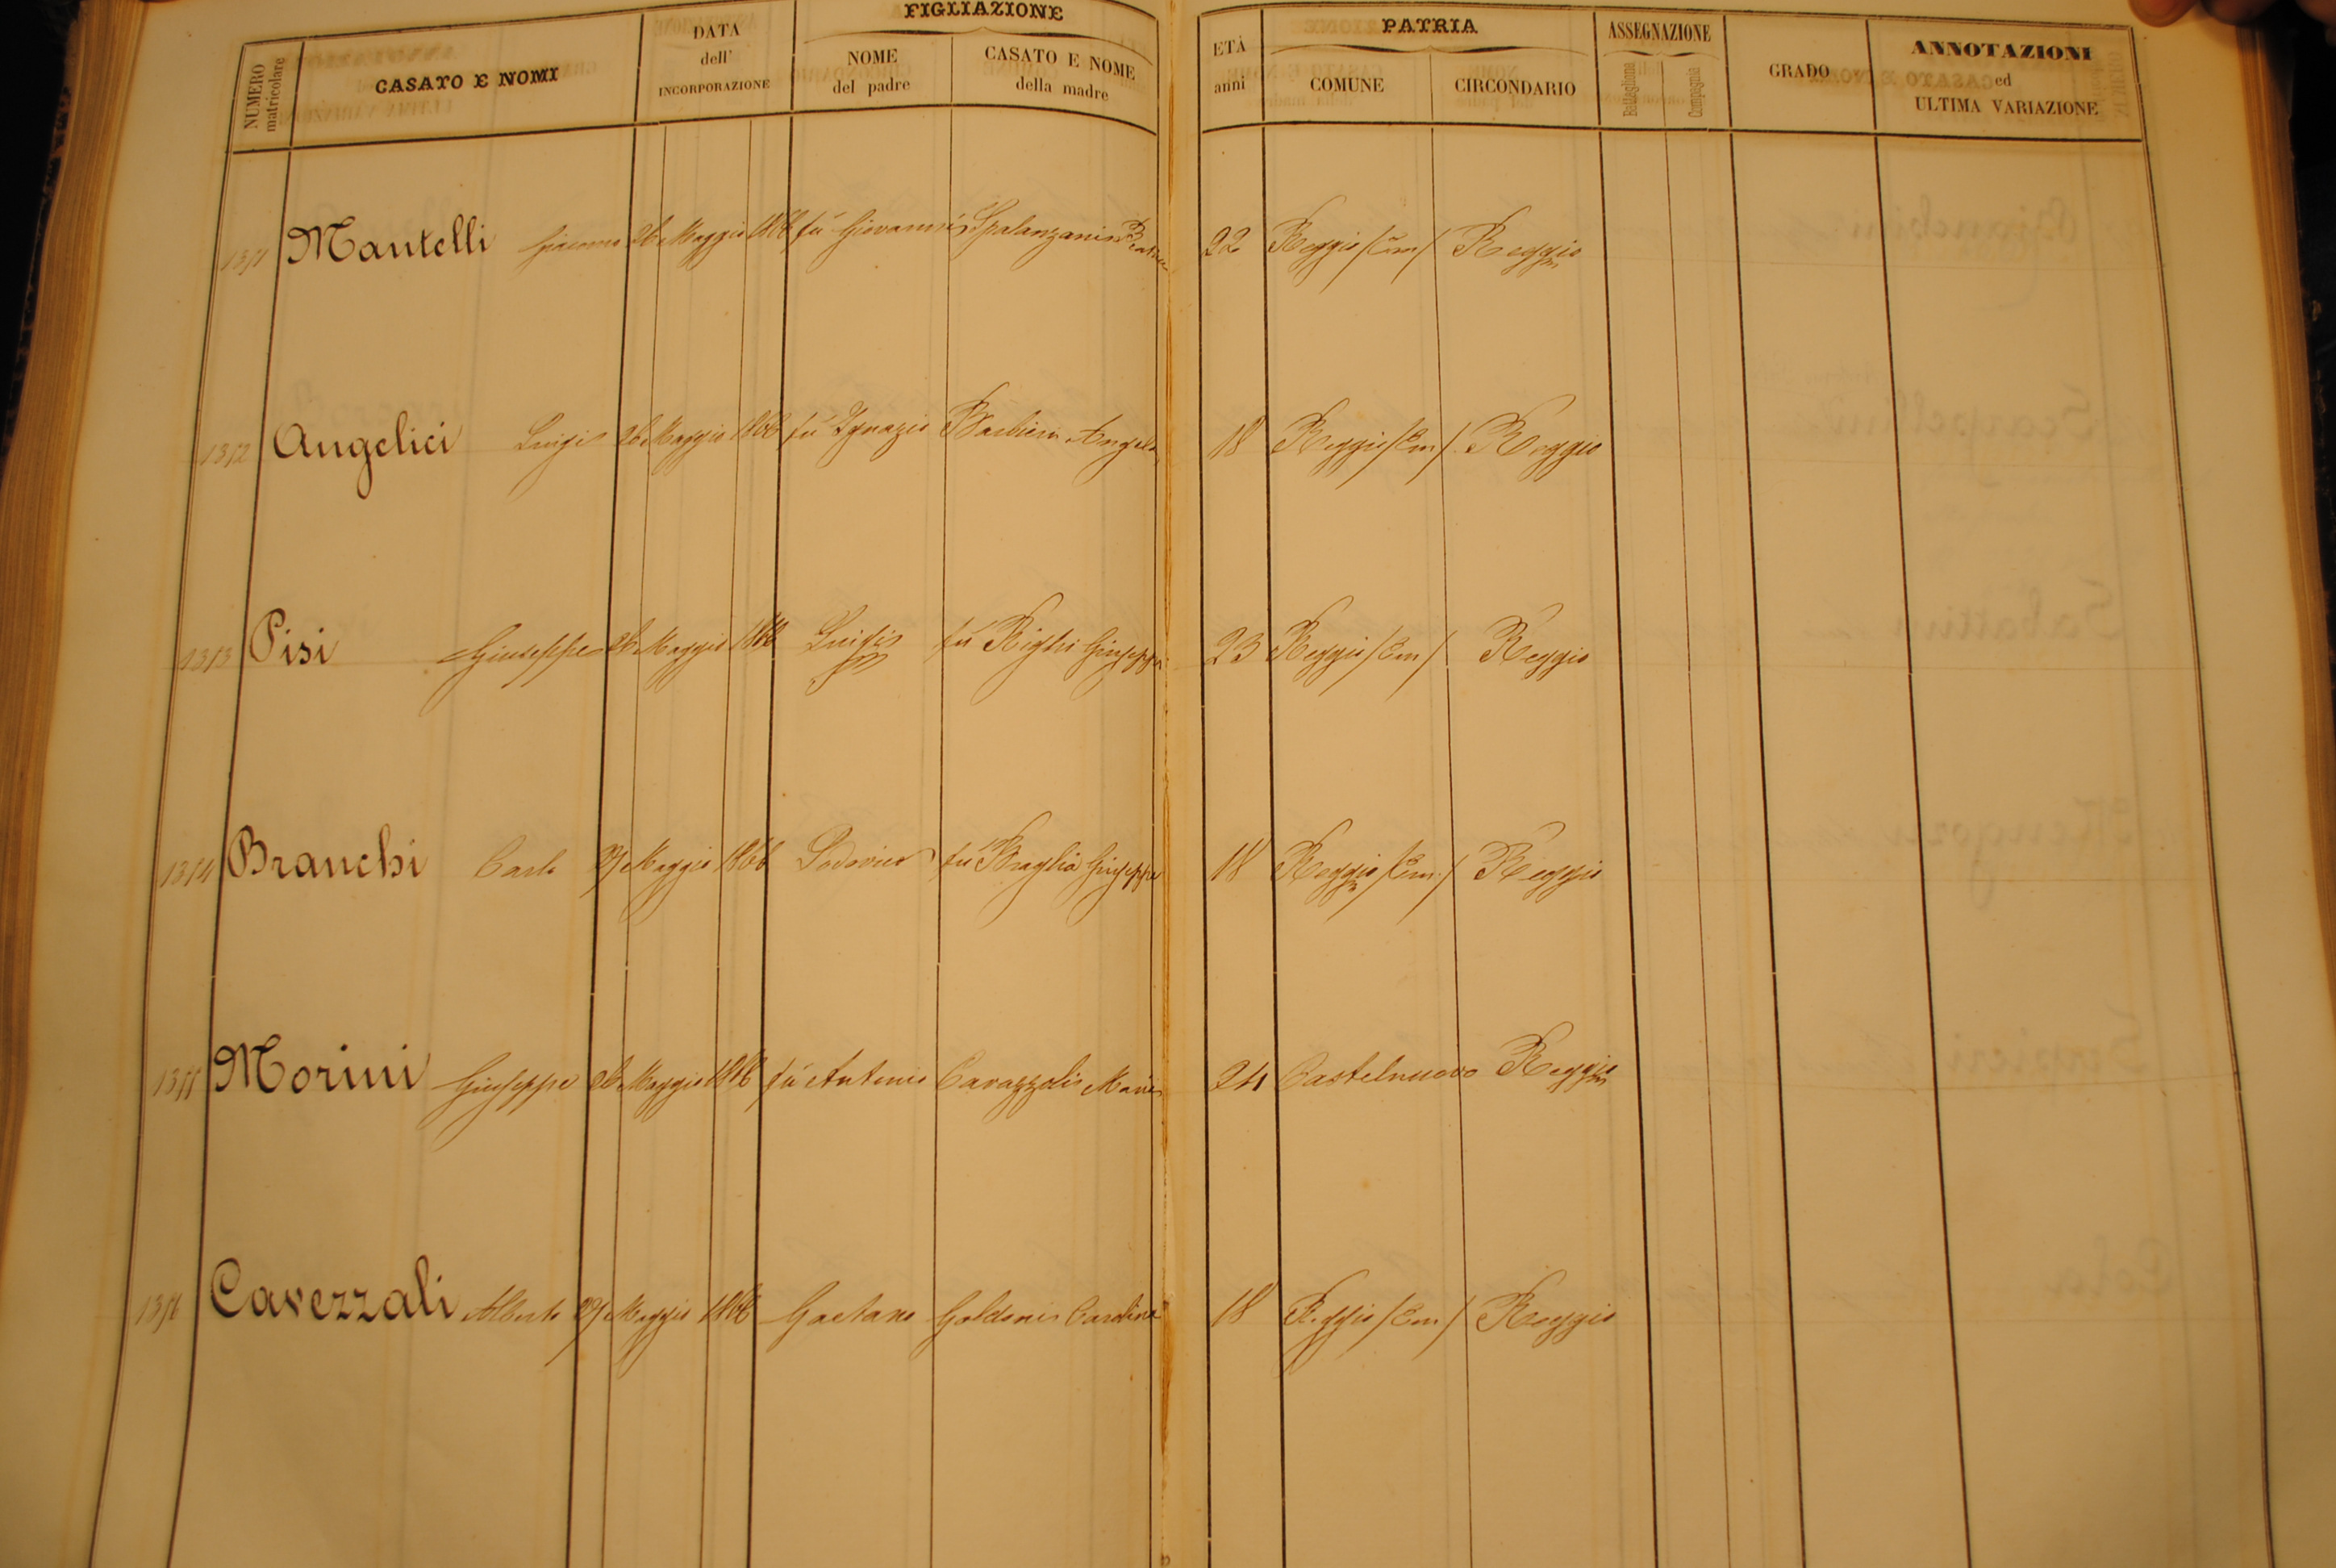 NUMERO matricolare CASATO E NOMI DATA dell' INCORPORAZIONE FIGLIAZIONE NOME del padre CASATO E NOME della madre ETÀ anni PATRIA COMUNE CIRCONDARIO ASSEGNAZIONE Battaglione Compagnia GRADO ANNOTAZIONI ed ULTIMA VARIAZIONE
1351 Mantelli Giacomo 26 Maggio 1866 fu Giovanni Spalanzani 22 Reggio /Em/ Reggio
1352 Angelici Luigi 26 Maggio 1866 fu Ignazio Barbieri Angela 18 Reggio /Em/ Reggio
1353 Pisi Giuseppe 26 Maggio 1866 Luigi fu Righi Giuseppa 23 Reggio /Em/ Reggio
1354 Branchi Carlo 27 Maggio 1866 Lodovico fu Braglia Giuseppa 18 Reggio /Em/ Reggio
1355 Morini Giuseppe 26 Maggio 1866 fu Antonio Cavazzoli Maria 24 Castelnuovo Reggio
1356 Cavezzali Alberto 27 Maggio 1866 Gaetano Goldoni Carolina 18 Reggio /Em/ Reggio